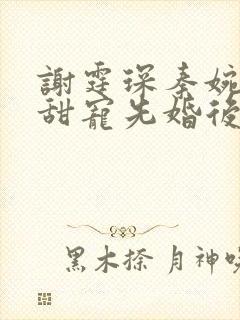 謝霆琛秦婉
甜寵先婚後
黑木捺 月神